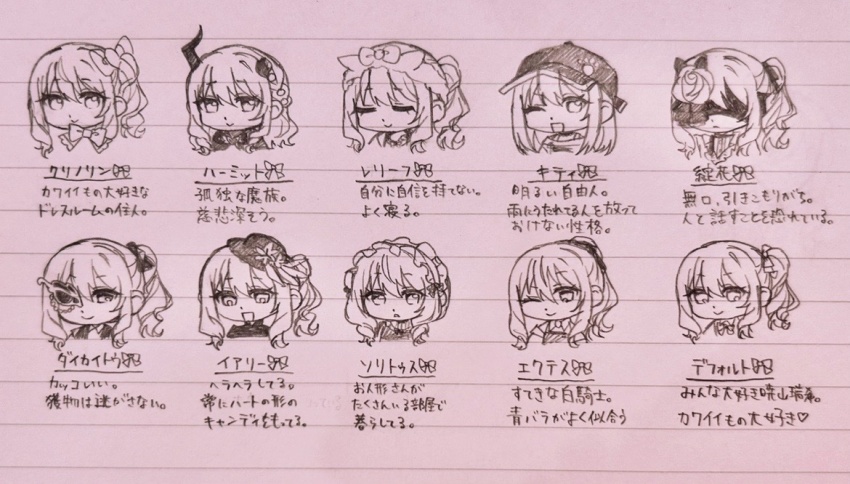 クリノリン🎀
カワイイもの大好きな
ドレスルームの住人。
ハーミット🎀
孤独な魔族。
慈悲深そう。
レリーフ🎀
自分に自信を持てない。
よく寝る。
キティ🎀
明るい自由人。
雨にうたれてる人を放って
おけない性格。
綻花🎀
無口、引きこもりがち。
人と話すことを恐れている。
ダイカイトウ🎀
カッコいい。
獲物は逃がさない。
イアリー🎀
ヘラヘラしてる。
常にハートの形の
キャンディをもってる。
ソリトゥス🎀
お人形さんが
たくさんいる部屋で
暮らしてる。
エクテス🎀
すてきな白騎士。
青バラがよく似合う
デフォルト🎀
みんな大好き暁山瑞希。
カワイイもの大好き♡